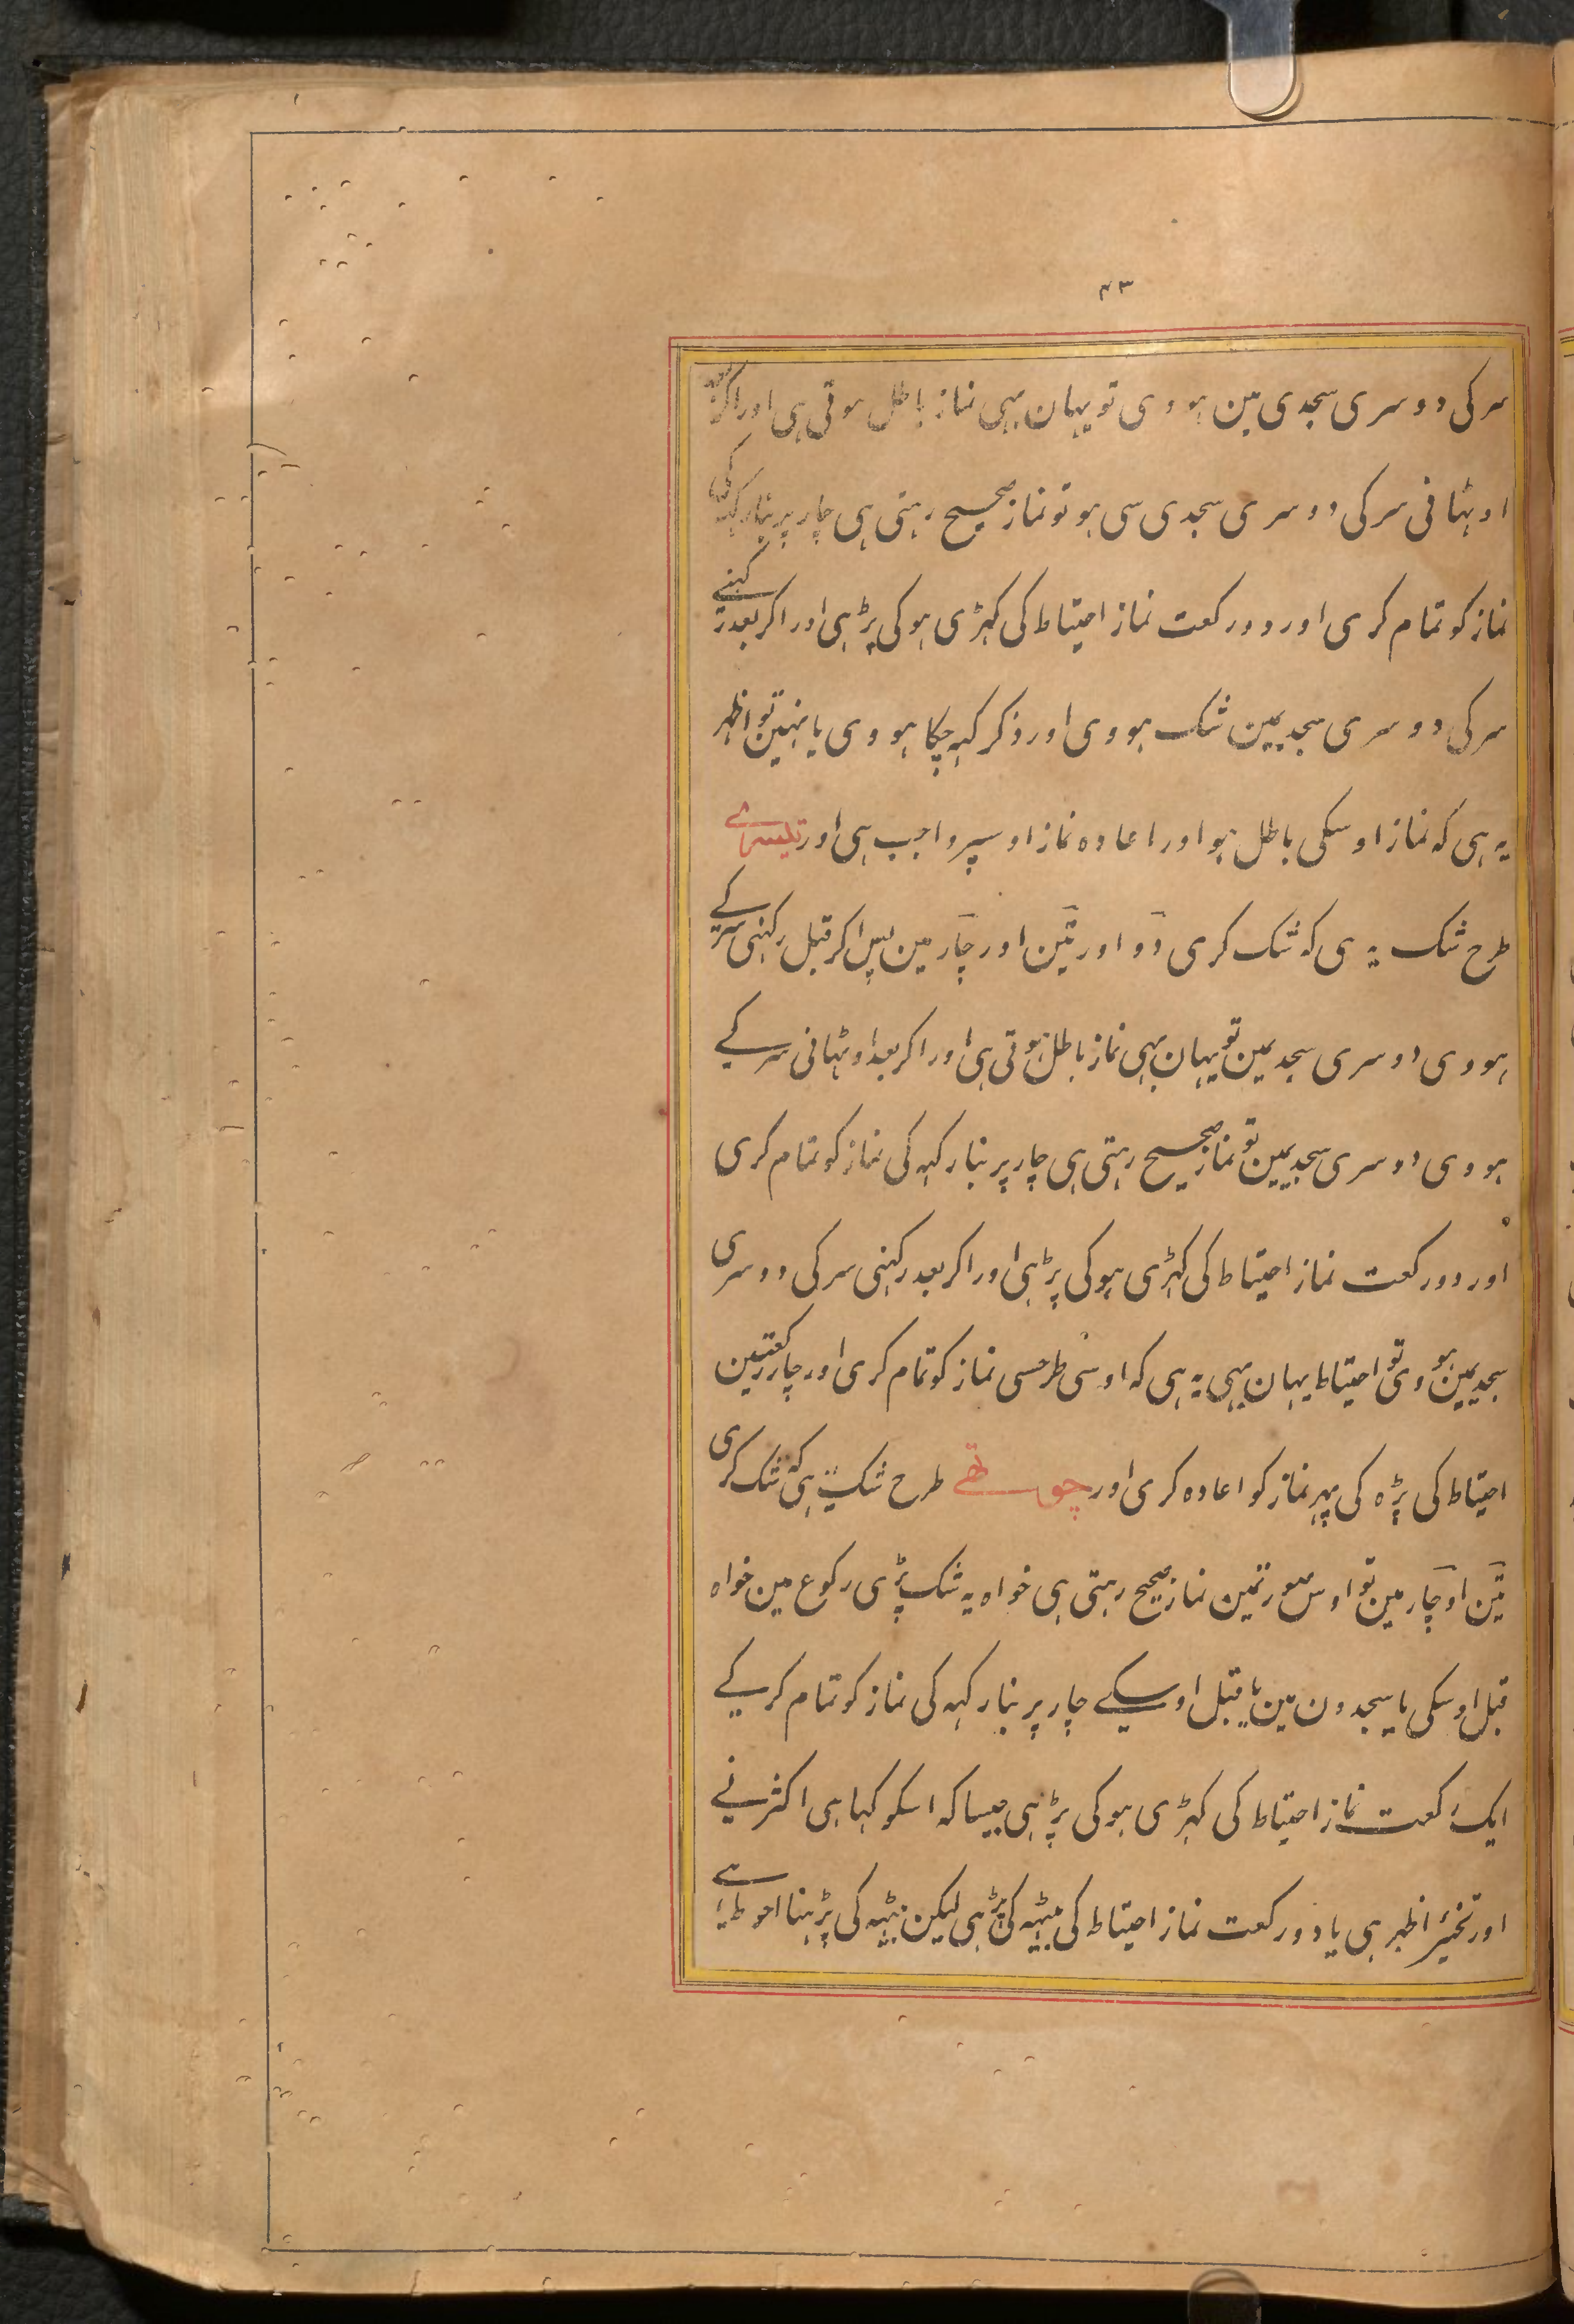 ۴۳
سر کی دوسری سجدی مین ہووی تو یہان بہی نماز باطل ہوتی ہی اور اکر بعد
اوٹہانی سر کی دوسری سجدی سی ہو تو نماز صحیح رہتی ہی چار پر بنا رکہہ کی
نماز کو تمام کری اور دو رکعت نماز احتیاط کی کہڑی ہو کی پڑہی اور اکر بعد رکہنے
سر کی دوسری سجدیمین شک ہووی اور ذکر کہہ چکا ہووی یا نہین تو اظہر
یہ ہی کہ نماز اوسکی باطل ہو اور اعادہ نماز اوسپر واجب ہی اور تیسرے
طرح شک یہ ہی کہ شک کری دو اور تین اور چار مین پس اکر قبل رکہنی سر کے
ہووی دوسری سجدیمین تو یہان بہی نماز باطل ہوتی ہی اور اکر بعد اوٹہانی سر کے
ہووی دوسری سجدیمین تو نماز صحیح رہتی ہی چار پر بنا رکہہ کی نماز کو تمام کری
اور دو رکعت نماز احتیاط کی کہڑی ہو کی پڑہی اور اکر بعد رکہنی سر کی دوسری
سجدیمین ہووی تو احتیاط یہان بہی یہ ہی کہ اوسی طرحسی نماز کو تمام کری اور چار رکعتین
احتیاط کی پڑہ کی پہر نماز کو اعادہ کری اور چوتھے طرح شک یہ ہی کہ شک کری
تین او چار مین تو اوس صورتمین نماز صحیح رہتی ہی خواہ یہ شک پڑی رکوع مین خواہ
قبل اوسکی یا سجدون مین یا قبل اوسکے چار پر بنا رکہہ کی نماز کو تمام کر کے
ایک رکعت نماز احتیاط کی کہڑی ہو کی پڑہی جیسا کہ اسکو کہا ہی اکثر نے
اور تخییر اظہر ہی یا دو رکعت نماز احتیاط کی بیٹہہ کی پڑہی لیکن بیٹہہ کی پڑہنا احوط ہے